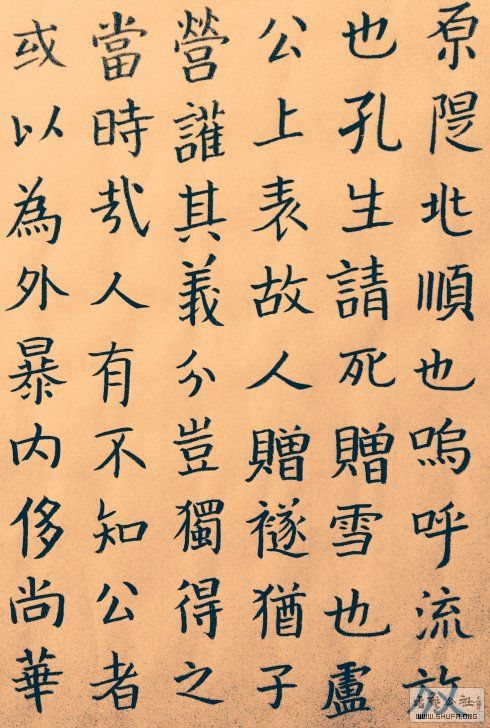 原隄北順也嗚呼流
也孔生請死贈雪也盧
公上表故人贈禭猶子
營護其義分豈獨得之
當時哉人有不知公者
或以為外暴内侈尚華
WWW.SHUFA.ORG